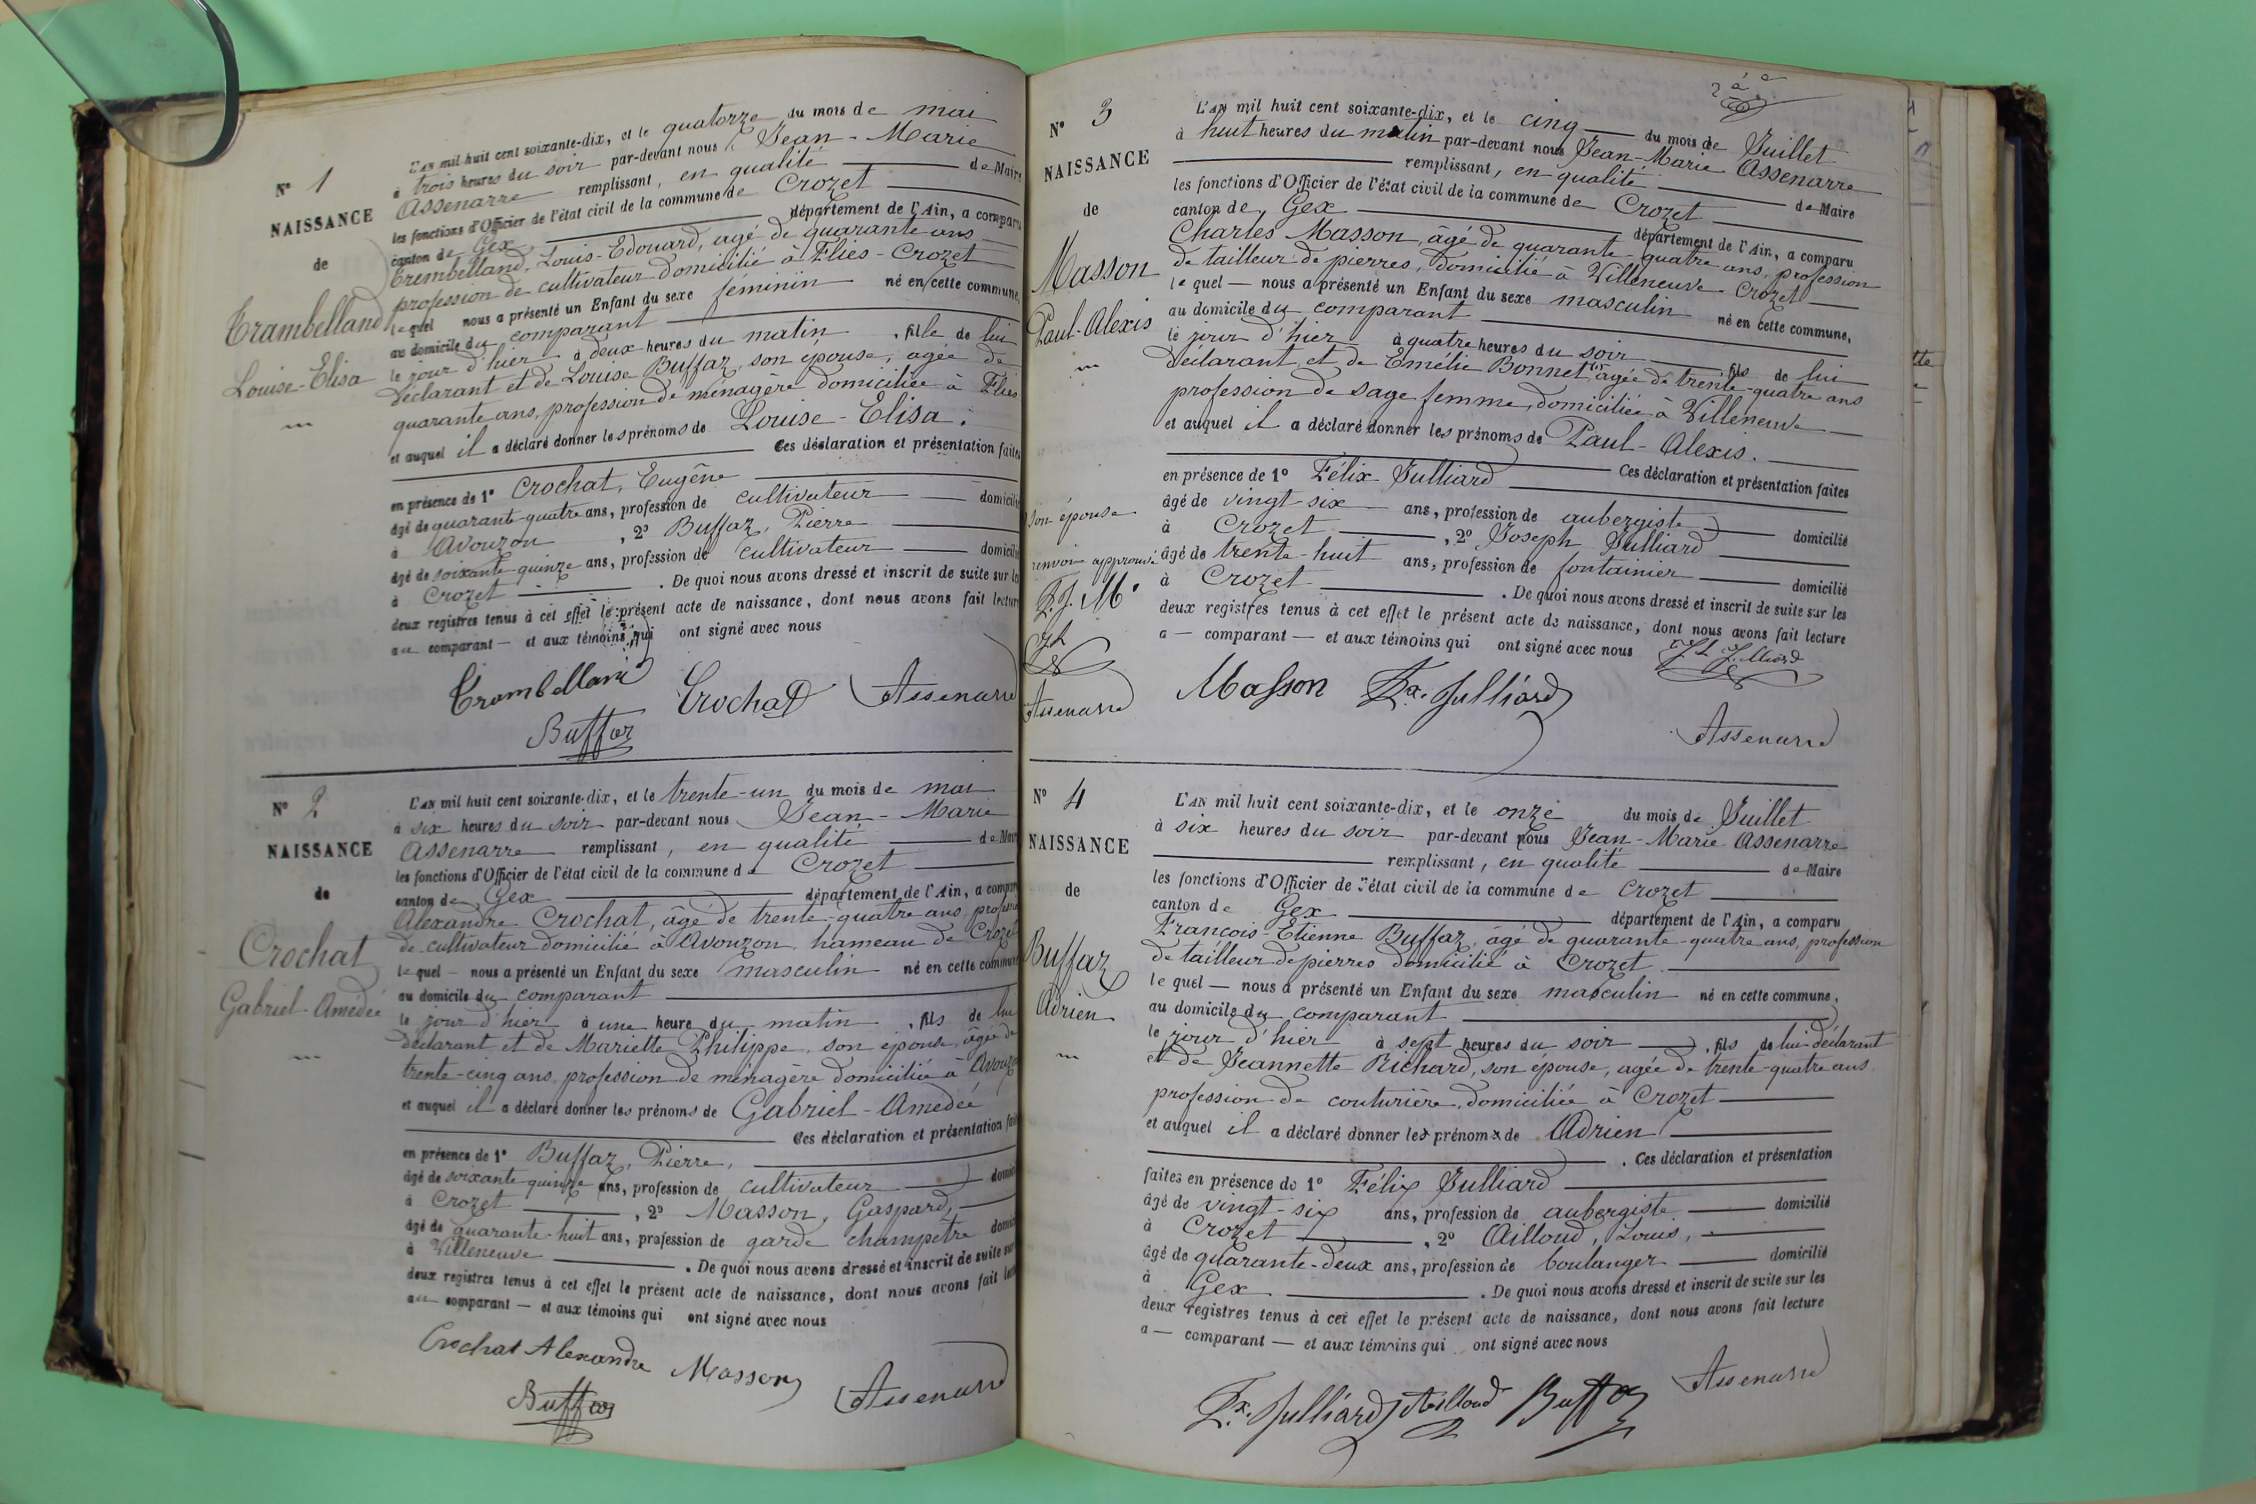 N° 1
NAISSANCE
de
Trambelland
Louise-Elisa
L'AN mil huit cent soixante-dix, et le quatorze du mois de mai
à trois heures du soir par-devant nous Jean-Marie
Assenarre remplissant, en qualité de Maire
les fonctions d'Officier de l'état civil de la commune de Crozet
canton de Gex département de l'Ain, a comparu
Trembelland, Louis-Edouard, agé de quarante ans
profession de cultivateur domicilié à Flies-Crozet
lequel nous a présenté un Enfant du sexe féminin né en cette commune,
au domicile du comparant
le jour d'hier à deux heures du matin, fille de lui
déclarant et de Louise Buffaz, son épouse, agée de
quarante ans, profession de ménagère domiciliée à Flies
et auquel il a déclaré donner les prénoms de Louise-Elisa.
Ces déclaration et présentation faites
en présence de 1° Crochat, Eugêne
âgé de quarante-quatre ans, profession de cultivateur domicilié
à Avouzon, 2° Buffaz, Pierre
âgé de soixante-quinze ans, profession de cultivateur domicilié
à Crozet. De quoi nous avons dressé et inscrit de suite sur les
deux registres tenus à cet effet le présent acte de naissance, dont nous avons fait lecture
au comparant et aux témoins qui ont signé avec nous
Trambelland Crochat Assenarre
Buffaz
N° 2
NAISSANCE
de
Crochat
Gabriel-Amédée
L'AN mil huit cent soixante-dix, et le trente-un du mois de mai
à six heures du soir par-devant nous Jean-Marie
Assenarre remplissant, en qualité de Maire
les fonctions d'Officier de l'état civil de la commune d Crozet
canton de Gex département de l'Ain, a comparu
Alexandre Crochat, âgé de trente-quatre ans, profession
de cultivateur domicilié à Avouzon, hameau de Crozet
lequel nous a présenté un Enfant du sexe masculin né en cette commune
au domicile du comparant
le jour d'hier à une heure du matin, fils de lui
déclarant et de Mariette Philippe, son épouse, âgée de
trente-cinq ans, profession de ménagère domiciliée à Avouzon
et auquel il a déclaré donner les prénoms de Gabriel-Amédée
Ces déclaration et présentation faites
en présence de 1° Buffaz, Pierre,
âgé de soixante quinze ans, profession de cultivateur domicilié
à Crozet, 2° Masson, Gaspard,
âgé de quarante-huit ans, profession de garde champêtre domicilié
à Villeneuve. De quoi nous avons dressé et inscrit de suite sur
deux registres tenus à cet effet le présent acte de naissance, dont nous avons fait lecture
au comparant et aux témoins qui ont signé avec nous
Crochat Alexandre Masson Assenarre
Buffaz
N° 3
NAISSANCE
de
Masson
Paul-Alexis
L'AN mil huit cent soixante-dix, et le cinq du mois de Juillet
à huit heures du matin par-devant nous Jean-Marie Assenarre
remplissant, en qualité de Maire
les fonctions d'Officier de l'état civil de la commune de Crozet
canton de Gex département de l'Ain, a comparu
Charles Masson, âgé de quarante-quatre ans, profession
de tailleur de pierres, domicilié à Villeneuve-Crozet
lequel nous a présenté un Enfant du sexe masculin né en cette commune,
au domicile du comparant
le jour d'hier à quatre heures du soir, fils de lui
déclarant et de Emélie Bonnet agée de trente-quatre ans
profession de sage femme, domiciliée à Villeneuve
et auquel il a déclaré donner les prénoms de Paul-Alexis.
Ces déclaration et présentation faites
en présence de 1° Félix Julliard
âgé de vingt-six ans, profession de aubergiste domicilié
à Crozet, 2° Joseph Julliard
âgé de trente-huit ans, profession de fontainier domicilié
à Crozet. De quoi nous avons dressé et inscrit de suite sur les
deux registres tenus à cet effet le présent acte de naissance, dont nous avons fait lecture
a comparant et aux témoins qui ont signé avec nous
son épouse
renvoi approuvé
Assenarre
Masson Fx. Julliard
Assenarre
N° 4
NAISSANCE
de
Buffaz
Adrien
L'AN mil huit cent soixante-dix, et le onze du mois de Juillet
à six heures du soir par-devant nous Jean-Marie Assenarre
remplissant, en qualité de Maire
les fonctions d'Officier de l'état civil de la commune de Crozet
canton de Gex département de l'Ain, a comparu
François-Etienne Buffaz, âgé de quarante-quatre ans, profession
de tailleur de pierres domicilié à Crozet
lequel nous a présenté un Enfant du sexe masculin né en cette commune,
au domicile du comparant
le jour d'hier à sept heures du soir, fils de lui déclarant
et de Jeannette Richard, son épouse, agée de trente-quatre ans
profession de couturière, domiciliée à Crozet
et auquel il a déclaré donner les prénoms de Adrien
. Ces déclaration et présentation
faites en présence de 1° Félix Julliard
âgé de vingt-six ans, profession de aubergiste domicilié
à Crozet, 2° Ailloud, Louis,
âgé de quarante-deux ans, profession de boulanger domicilié
à Gex. De quoi nous avons dressé et inscrit de suite sur les
deux registres tenus à cet effet le présent acte de naissance, dont nous avons fait lecture
a comparant et aux témoins qui ont signé avec nous
Fx. Julliard Ailloud Buffaz Assenarre